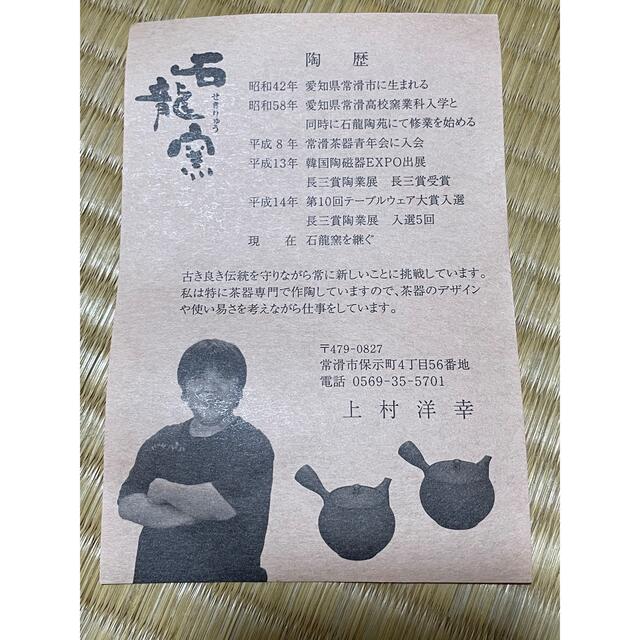 石龍窯
せきりゅう
陶歴
昭和42年 愛知県常滑市に生まれる
昭和58年 愛知県常滑高校窯業科入学と
同時に石龍陶苑にて修業を始める
平成8年 常滑茶器青年会に入会
平成13年 韓国陶磁器EXPO出展
長三賞陶業展 長三賞受賞
平成14年 第10回テーブルウェア大賞入選
長三賞陶業展 入選5回
現在 石龍窯を継ぐ
古き良き伝統を守りながら常に新しいことに挑戦しています。
私は特に茶器専門で作陶していますので、茶器のデザイン
や使い易さを考えながら仕事をしています。
〒479-0827
常滑市保示町4丁目56番地
電話 0569-35-5701
上村洋幸